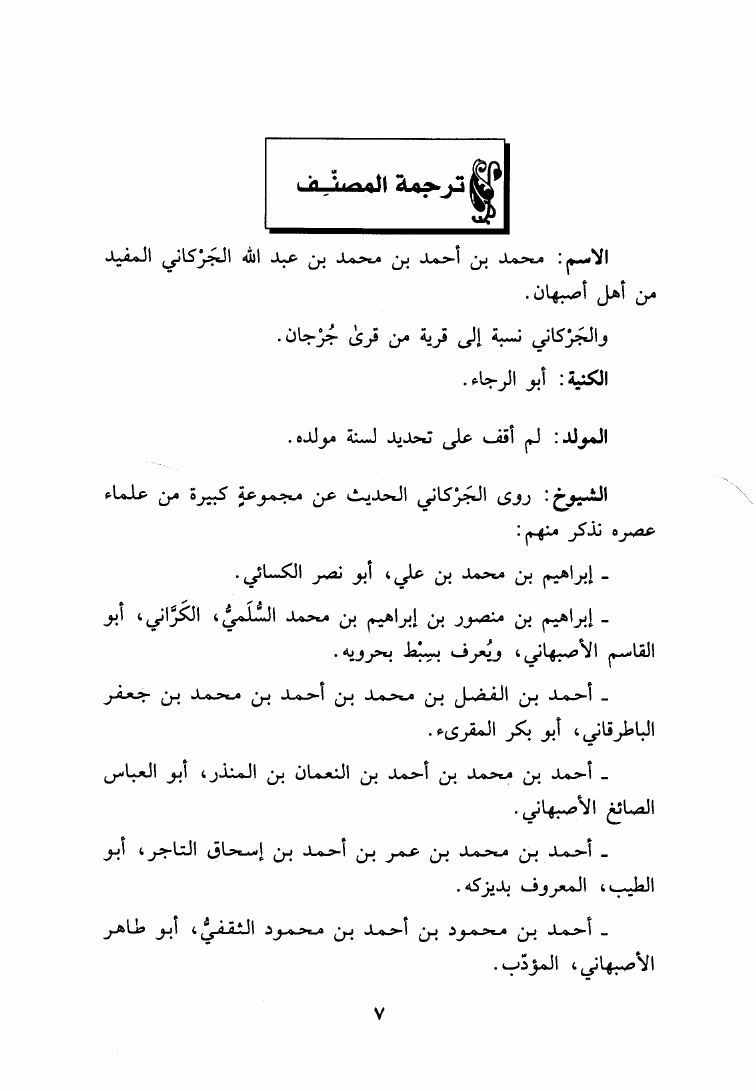 ترجمة المصنِّف
الاسم: محمد بن أحمد بن محمد بن عبد الله الجَرْكاني المفيد
من أهل أصبهان.
والجَرْكاني نسبة إلى قرية من قرىٰ جُرْجان.
الكنية: أبو الرجاء.
المولد: لم أقف على تحديد لسنة مولده.
الشيوخ: روى الجَرْكاني الحديث عن مجموعةٍ كبيرة من علماء
عصره نذكر منهم:
ـ إبراهيم بن محمد بن علي، أبو نصر الكسائي.
ـ إبراهيم بن منصور بن إبراهيم بن محمد السُّلَميُّ، الكَرَّاني، أبو
القاسم الأصبهاني، ويُعرف بسِبْط بحرويه.
ـ أحمد بن الفضل بن محمد بن أحمد بن محمد بن جعفر
الباطرقاني، أبو بكر المقرىء.
ـ أحمد بن محمد بن أحمد بن النعمان بن المنذر، أبو العباس
الصائغ الأصبهاني.
ـ أحمد بن محمد بن عمر بن أحمد بن إسحاق التاجر، أبو
الطيب، المعروف بديزكه.
ـ أحمد بن محمود بن أحمد بن محمود الثقفيُّ، أبو طاهر
الأصبهاني، المؤدّب.
٧